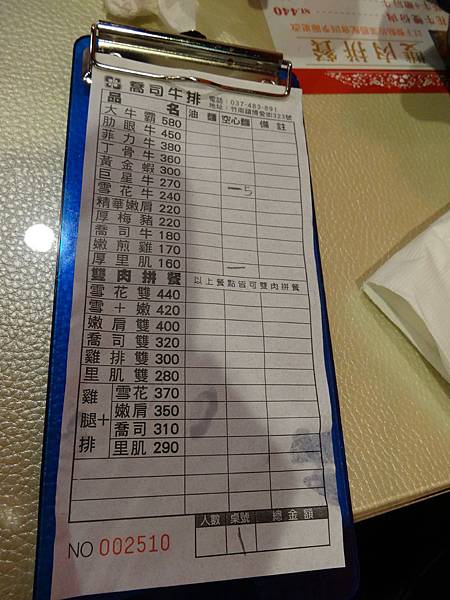 喬司牛排
電話：037-483-891
地址：竹南鎮博愛街323號
品名 油麵 空心麵 備註
大牛霸 580
肋眼牛 450
菲力牛 380
丁骨牛 360
黃金蝦 300
巨星牛 270
雪花牛 240 一 5
精華嫩肩 220
厚梅豬 220
喬司牛 180
嫩煎雞 170
厚里肌 160 一
雙肉拼餐 以上餐點皆可雙肉拼餐
雪花雙 440
雪＋嫩 420
嫩肩雙 400
喬司雙 320
雞排雙 300
里肌雙 280
雞腿排＋
雪花 370
嫩肩 350
喬司 310
里肌 290
人數 桌號 總金額
1
NO 002510
雙肉拼餐
花牛雙份肉
NT.440